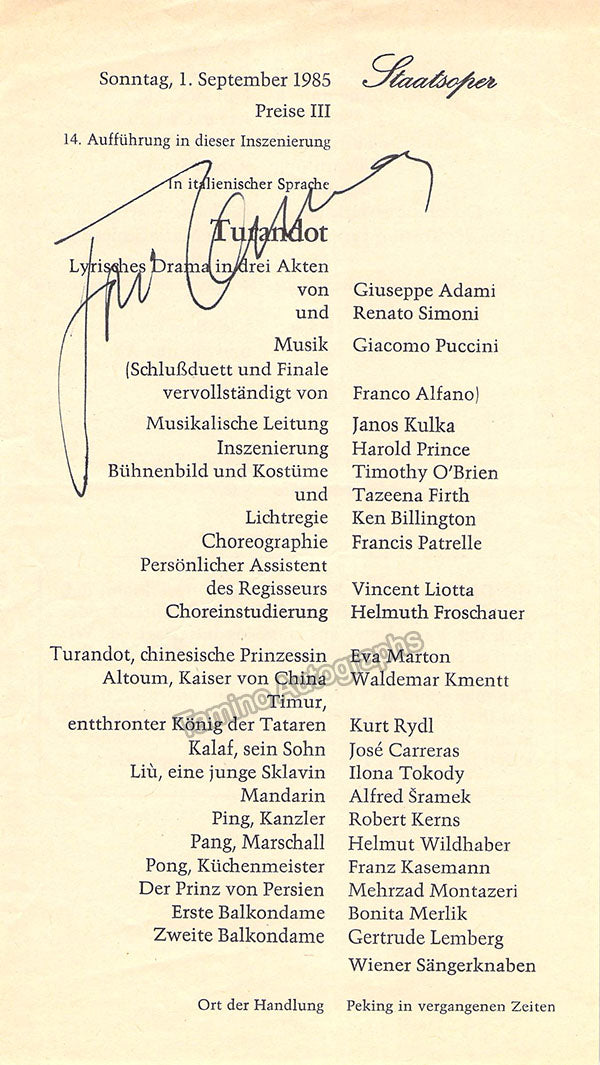 Sonntag, 1. September 1985 Staatsoper
Preise III
14. Aufführung in dieser Inszenierung
In italienischer Sprache
Turandot
Lyrisches Drama in drei Akten
von Giuseppe Adami
und Renato Simoni
Musik Giacomo Puccini
(Schlußduett und Finale
vervollständigt von Franco Alfano)
Musikalische Leitung Janos Kulka
Inszenierung Harold Prince
Bühnenbild und Kostüme Timothy O'Brien
und Tazeena Firth
Lichtregie Ken Billington
Choreographie Francis Patrelle
Persönlicher Assistent
des Regisseurs Vincent Liotta
Choreinstudierung Helmuth Froschauer
Turandot, chinesische Prinzessin Eva Marton
Altoum, Kaiser von China Waldemar Kmentt
Timur,
entthronter König der Tataren Kurt Rydl
Kalaf, sein Sohn José Carreras
Liù, eine junge Sklavin Ilona Tokody
Mandarin Alfred Šramek
Ping, Kanzler Robert Kerns
Pang, Marschall Helmut Wildhaber
Pong, Küchenmeister Franz Kasemann
Der Prinz von Persien Mehrzad Montazeri
Erste Balkondame Bonita Merlik
Zweite Balkondame Gertrude Lemberg
Wiener Sängerknaben
Ort der Handlung Peking in vergangenen Zeiten
Tamino Autographs